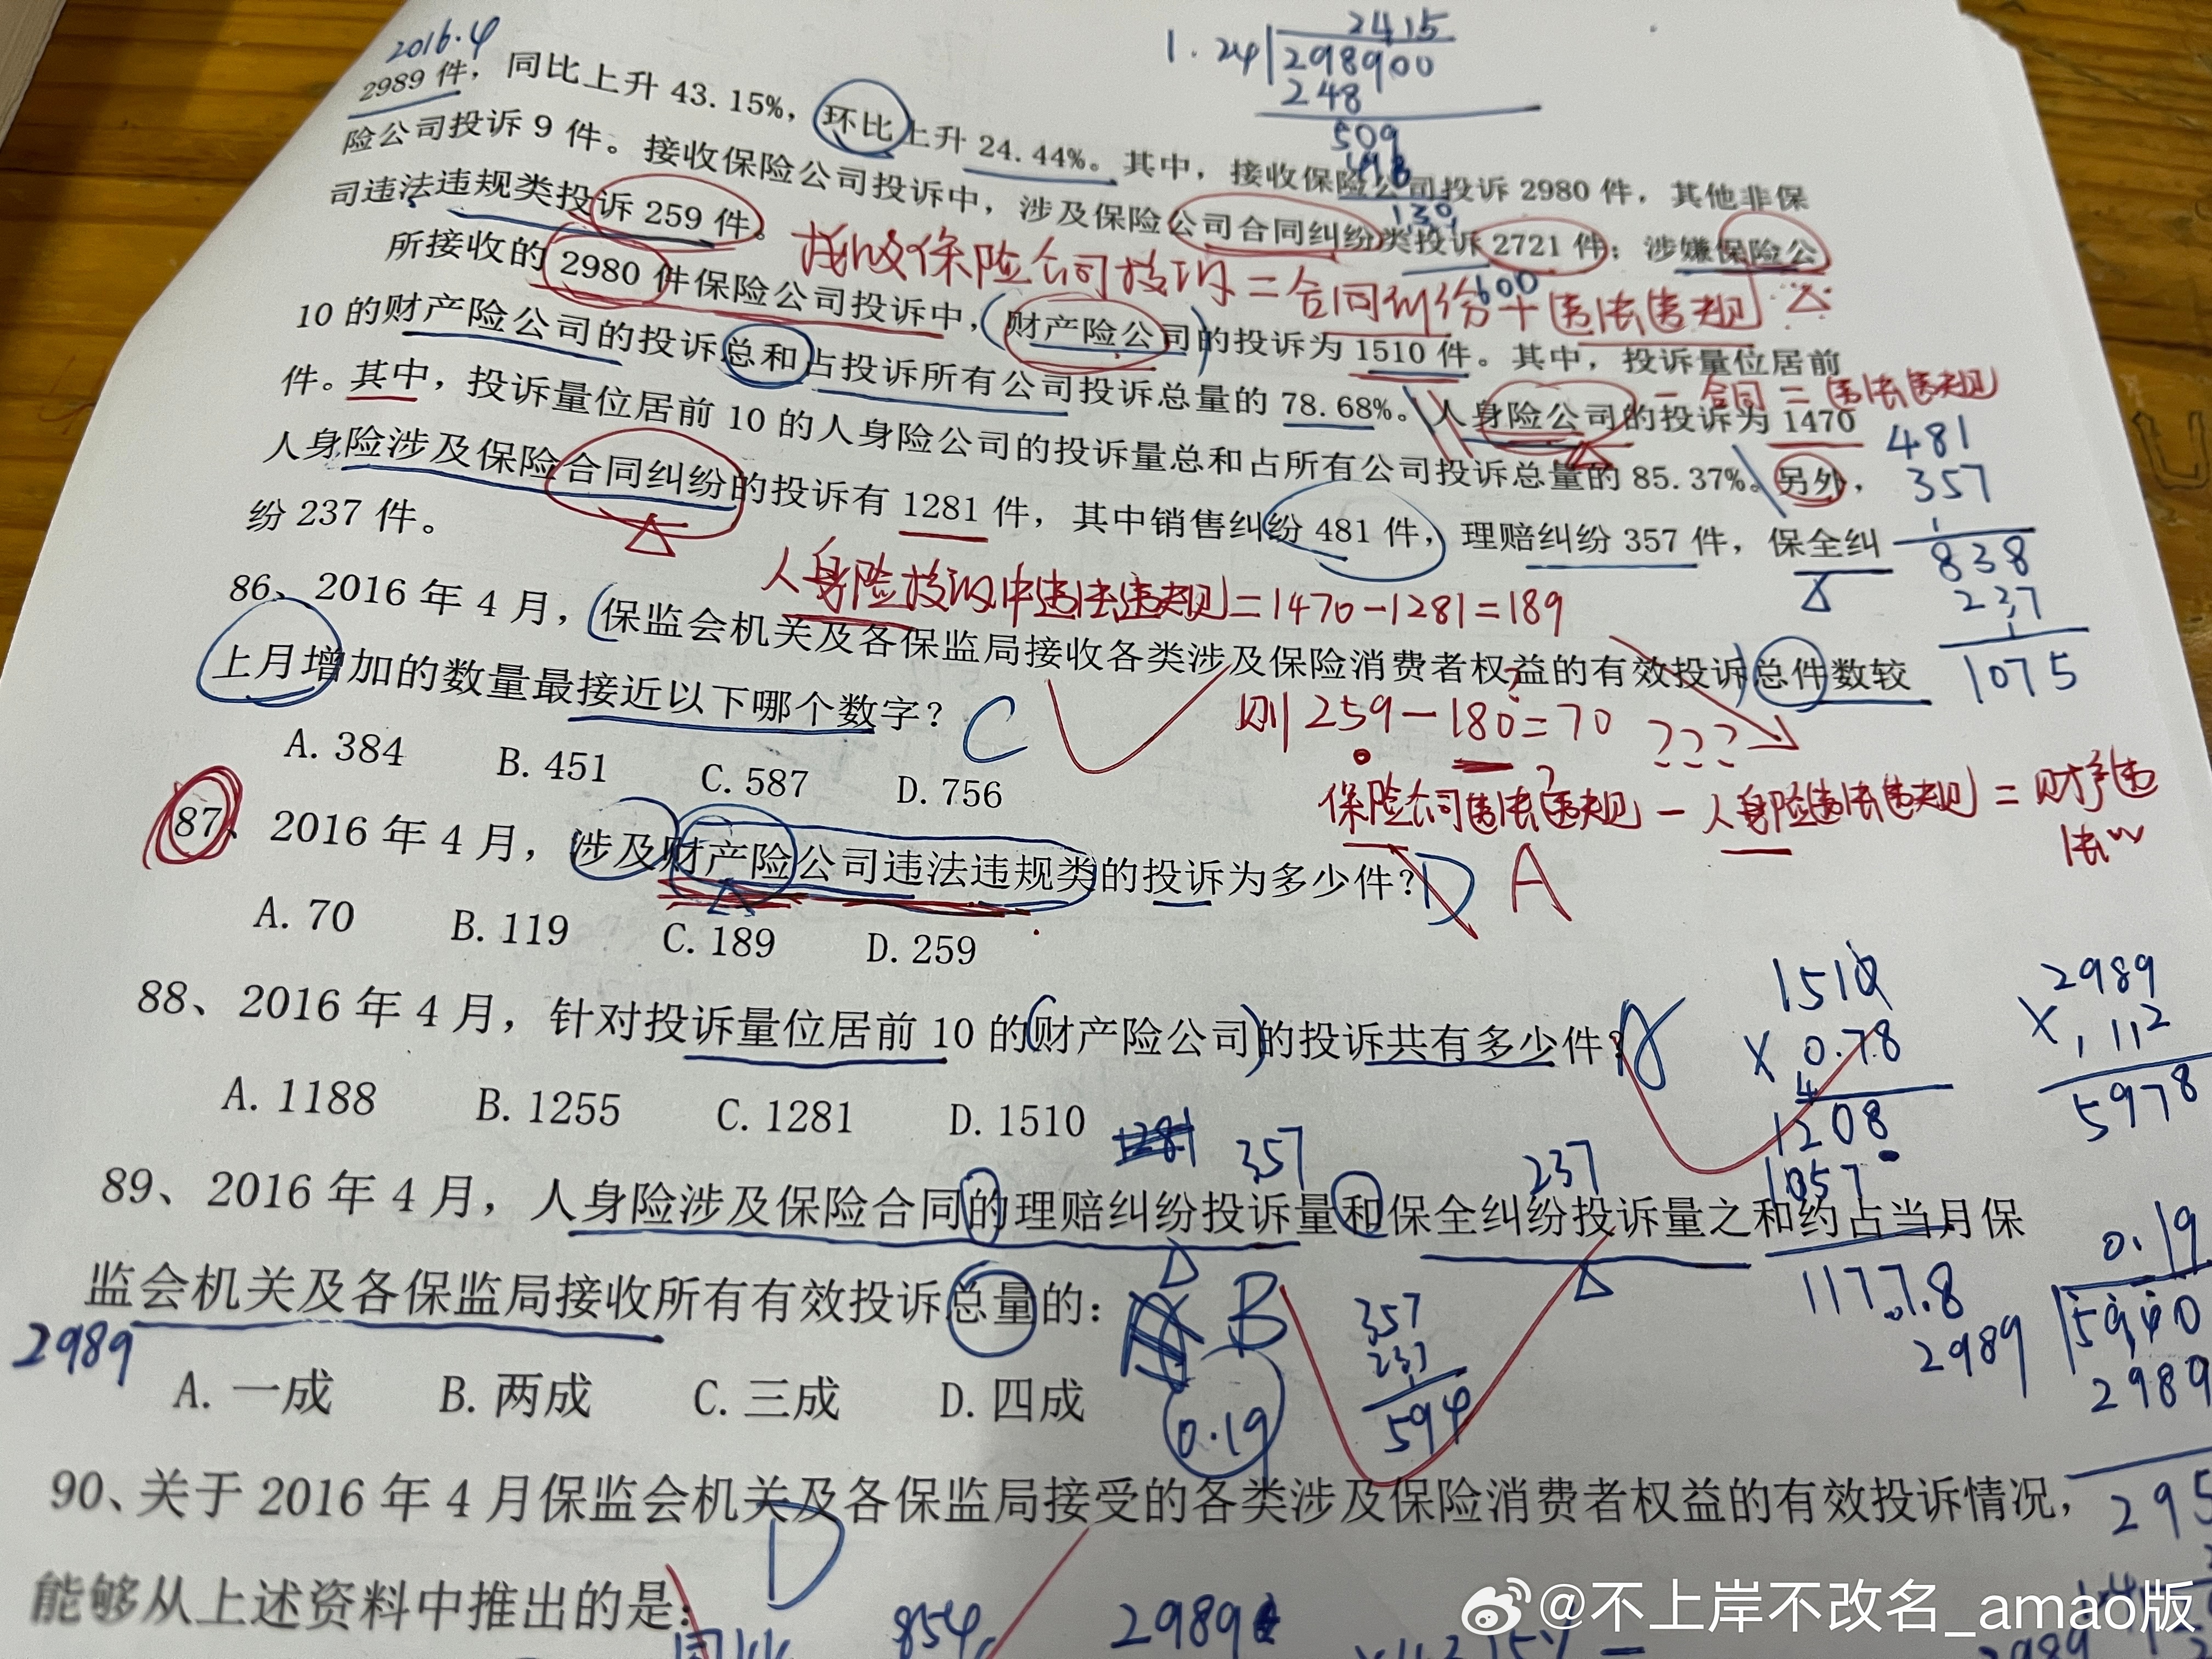 2016.4
2989 件，同比上升 43.15%，环比上升 24.44%。其中，接收保险公司投诉 2980 件，其他非保
险公司投诉 9 件。接收保险公司投诉中，涉及保险公司合同纠纷类投诉 2721 件；涉嫌保险公
司违法违规类投诉 259 件。
接收保险公司投诉=合同纠纷+违法违规
所接收的 2980 件保险公司投诉中，财产险公司的投诉为 1510 件。其中，投诉量位居前
10 的财产险公司的投诉总和占投诉所有公司投诉总量的 78.68%。人身险公司的投诉为 1470
-合同=违法违规
件。其中，投诉量位居前 10 的人身险公司的投诉量总和占所有公司投诉总量的 85.37%。另外，
人身险涉及保险合同纠纷的投诉有 1281 件，其中销售纠纷 481 件，理赔纠纷 357 件，保全纠
纷 237 件。
人身险投诉中违法违规=1470-1281=189
1.24
2415
298900
248
509
130
600
481
357
838
237
1075
86、2016 年 4 月，保监会机关及各保监局接收各类涉及保险消费者权益的有效投诉总件数较
上月增加的数量最接近以下哪个数字？ C
A. 384 B. 451 C. 587 D. 756
则 259-180=70 ???
保险公司违法违规-人身险违法违规=财产违
法
87、2016 年 4 月，涉及财产险公司违法违规类的投诉为多少件？ D A
A. 70 B. 119 C. 189 D. 259
88、2016 年 4 月，针对投诉量位居前 10 的财产险公司的投诉共有多少件？ A
A. 1188 B. 1255 C. 1281 D. 1510
1510
× 0.78
1208
1057
1177.8
2989
× 112
5978
1281 357 237
89、2016 年 4 月，人身险涉及保险合同的理赔纠纷投诉量和保全纠纷投诉量之和约占当月保
监会机关及各保监局接收所有有效投诉总量的： B
2989
A. 一成 B. 两成 C. 三成 D. 四成
0.19
357
237
594
0.19
2989
5940
2989
295
90、关于 2016 年 4 月保监会机关及各保监局接受的各类涉及保险消费者权益的有效投诉情况，
能够从上述资料中推出的是： D
854
2989
@不上岸不改名_amao版